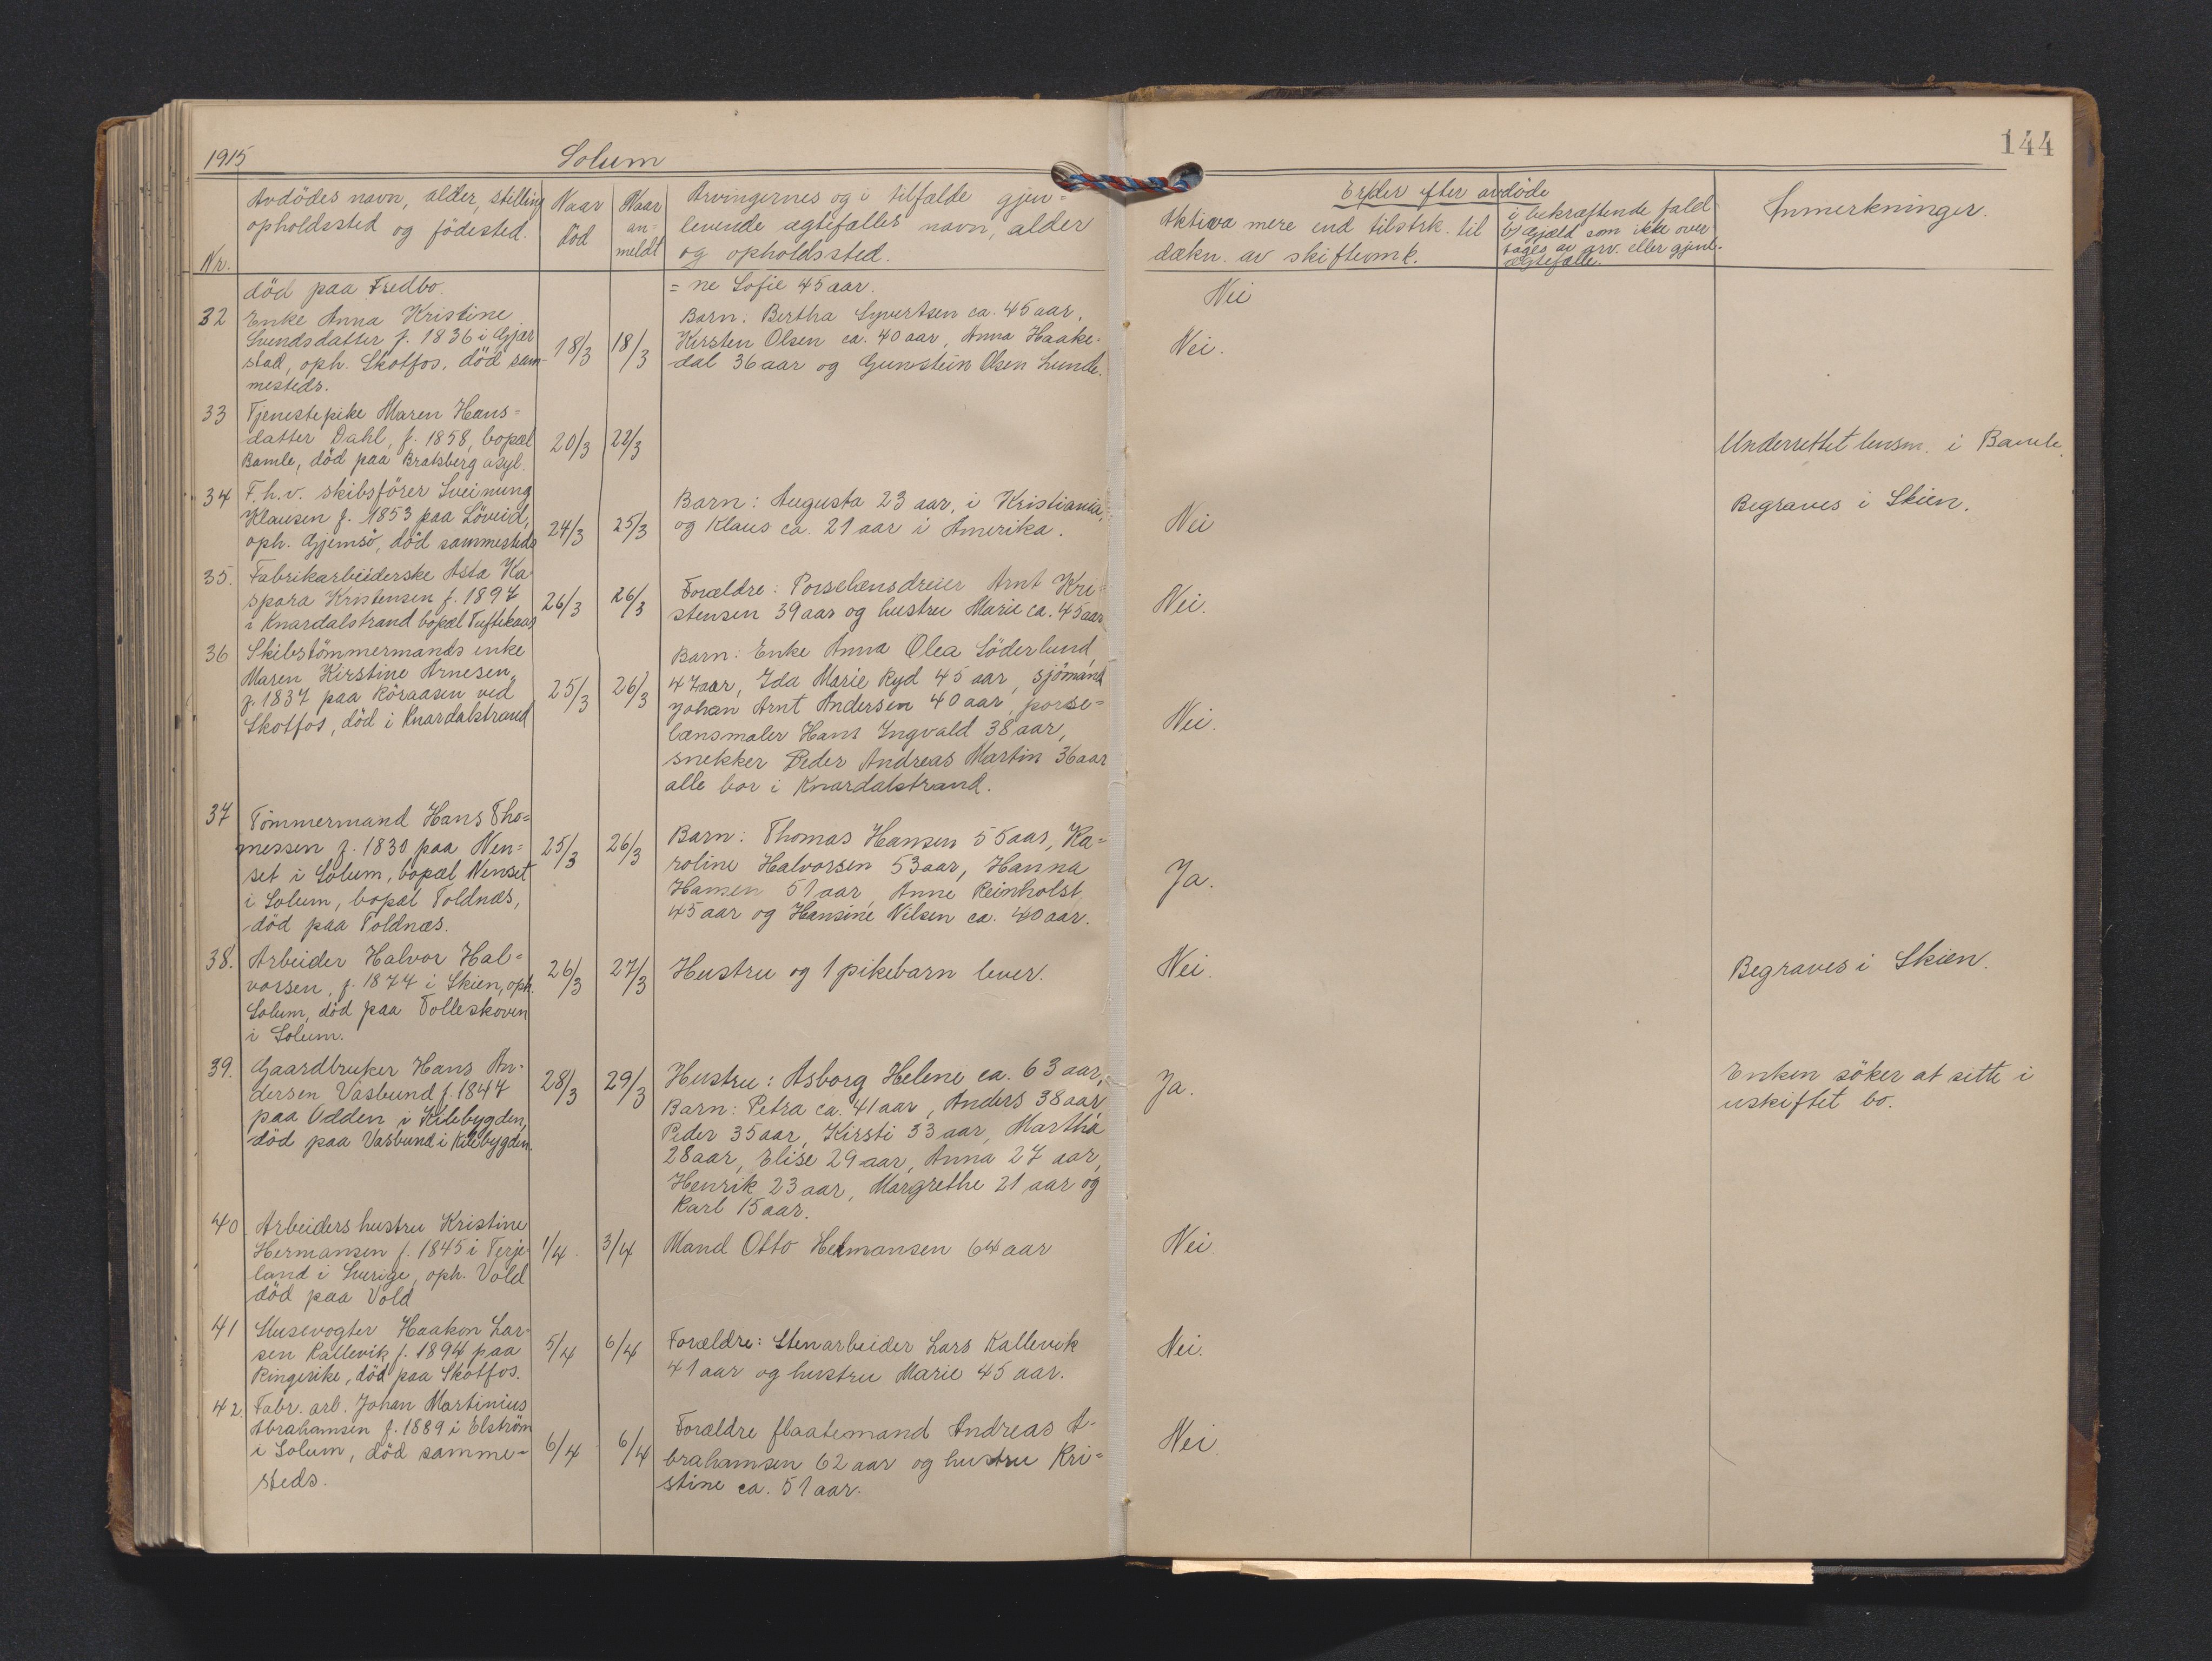 144
1915 Solum
Avdödes navn, alder, stilling
opholdssted og födested.
Nr.
Naar
död
Naar
an=
meldt
Arvingernes og i tilfælde gjen=
levende ægtefælles navn, alder
og opholdssted.
Er der efter avdöde
Aktiva mere end tilstrk. til
dækn. av skifteomk.
i bekræftende fald
b) Gjæld som ikke over
tages av arv. eller gjenl.
ægtefælle.
Anmerkninger.
död paa Fredbo.
= ne Sofie 45 aar.
Nei
32 Enke Anna Kristine
Svendsdatter f. 1836 i Gjær
stad, oph. Skotfos, död sam-
mesteds.
18/3 18/3
Barn: Bertha Syvertsen ca. 45 aar,
Kirsten Olsen ca. 40 aar, Anna Haake-
dal 36 aar og Gunstein Olsen Lunde.
Nei.
33 Tjenestepike Maren Hans=
datter Dahl, f. 1858, bopæl
Bamle, död paa Bratsberg asyl.
20/3 22/3
Underrettet lensm. i Bamle.
34 F.h.v. skibsförer Sveinung
Klausen f. 1853 paa Löveid,
oph. Gjemsö, död sammesteds
24/3 25/3
Barn: Augusta 23 aar, i Kristiania,
og Klaus ca. 21 aar i Amerika.
Nei
Begraves i Skien.
35. Fabrikarbeiderske Asta Ka
spara Kristensen f. 1897
i Knardalstrand bopæl Tuftekaas
26/3 26/3
Forældre: Porselænsdreier Arnt Kri=
stensen 39 aar og hustru Marie ca. 45 aar
Nei.
36 Skibstömmermands enke
Maren Kirstine Arnesen,
f. 1837 paa Röraasen ved
Skotfos, död i Knardalstrand
25/3 26/3
Barn: Enke Anna Olea Söderlund
47 aar, Ida Marie Ryd 45 aar, sjömand
Johan Arnt Andersen 40 aar, porse=
lænsmaler Hans Ingvald 38 aar,
snekker Peder Andreas Martin 36 aar
alle bor i Knardalstrand.
Nei.
37 Tömmermand Hans Tho=
messen f. 1830 paa Nen=
set i Solum, bopæl Nenset
i Solum, bopæl Toldnæs,
död paa Toldnæs.
25/3 26/3
Barn: Thomas Hansen 55 aar, Ka=
roline Halvorsen 53 aar, Hanna
Hansen 51 aar, Anne Reinholst
45 aar og Hansine Nilsen ca. 40 aar.
Ja.
38. Arbeider Halvor Hal=
vorsen, f. 1874 i Skien, oph.
Solum, död paa Tolleskoven
i Solum.
26/3 27/3
Hustru og 1 pikebarn lever.
Nei.
Begraves i Skien.
39. Gaardbruker Hans An-
dersen Vasbund f. 1847
paa Odden i Kilebygden,
död paa Vasbund i Kilebygden.
28/3 29/3
Hustru: Asborg Helene ca. 63 aar,
Barn: Petra ca. 41 aar, Anders 38 aar,
Peder 35 aar, Kirsti 33 aar, Martha
28 aar, Elise 29 aar, Anna 27 aar,
Henrik 23 aar, Margrethe 21 aar og
Karl 15 aar.
Ja.
Enken söker at sitte i
uskiftet bo.
40 Arbeiders hustru Kristine
Hermansen f. 1845 i Terje
land i Sverige, oph. Vold
död paa Vold
1/4. 3/4
Mand Otto Hermansen 64 aar
Nei.
41 Slusevogter Haakon Lar-
sen Kallevik f. 1894 paa
Ringerike, död paa Skotfos.
5/4 6/4
Forældre: Stenarbeider Lars Kallevik
41 aar og hustru Marie 45 aar.
Nei.
42. Fabr. arb. Johan Martinius
Abrahamsen f. 1889 i Elström
i Solum, död samme=
steds.
6/4 6/4
Forældre flaatemand Andreas A-
brahamsen 62 aar og hustru Kri=
stine ca. 51 aar.
Nei.